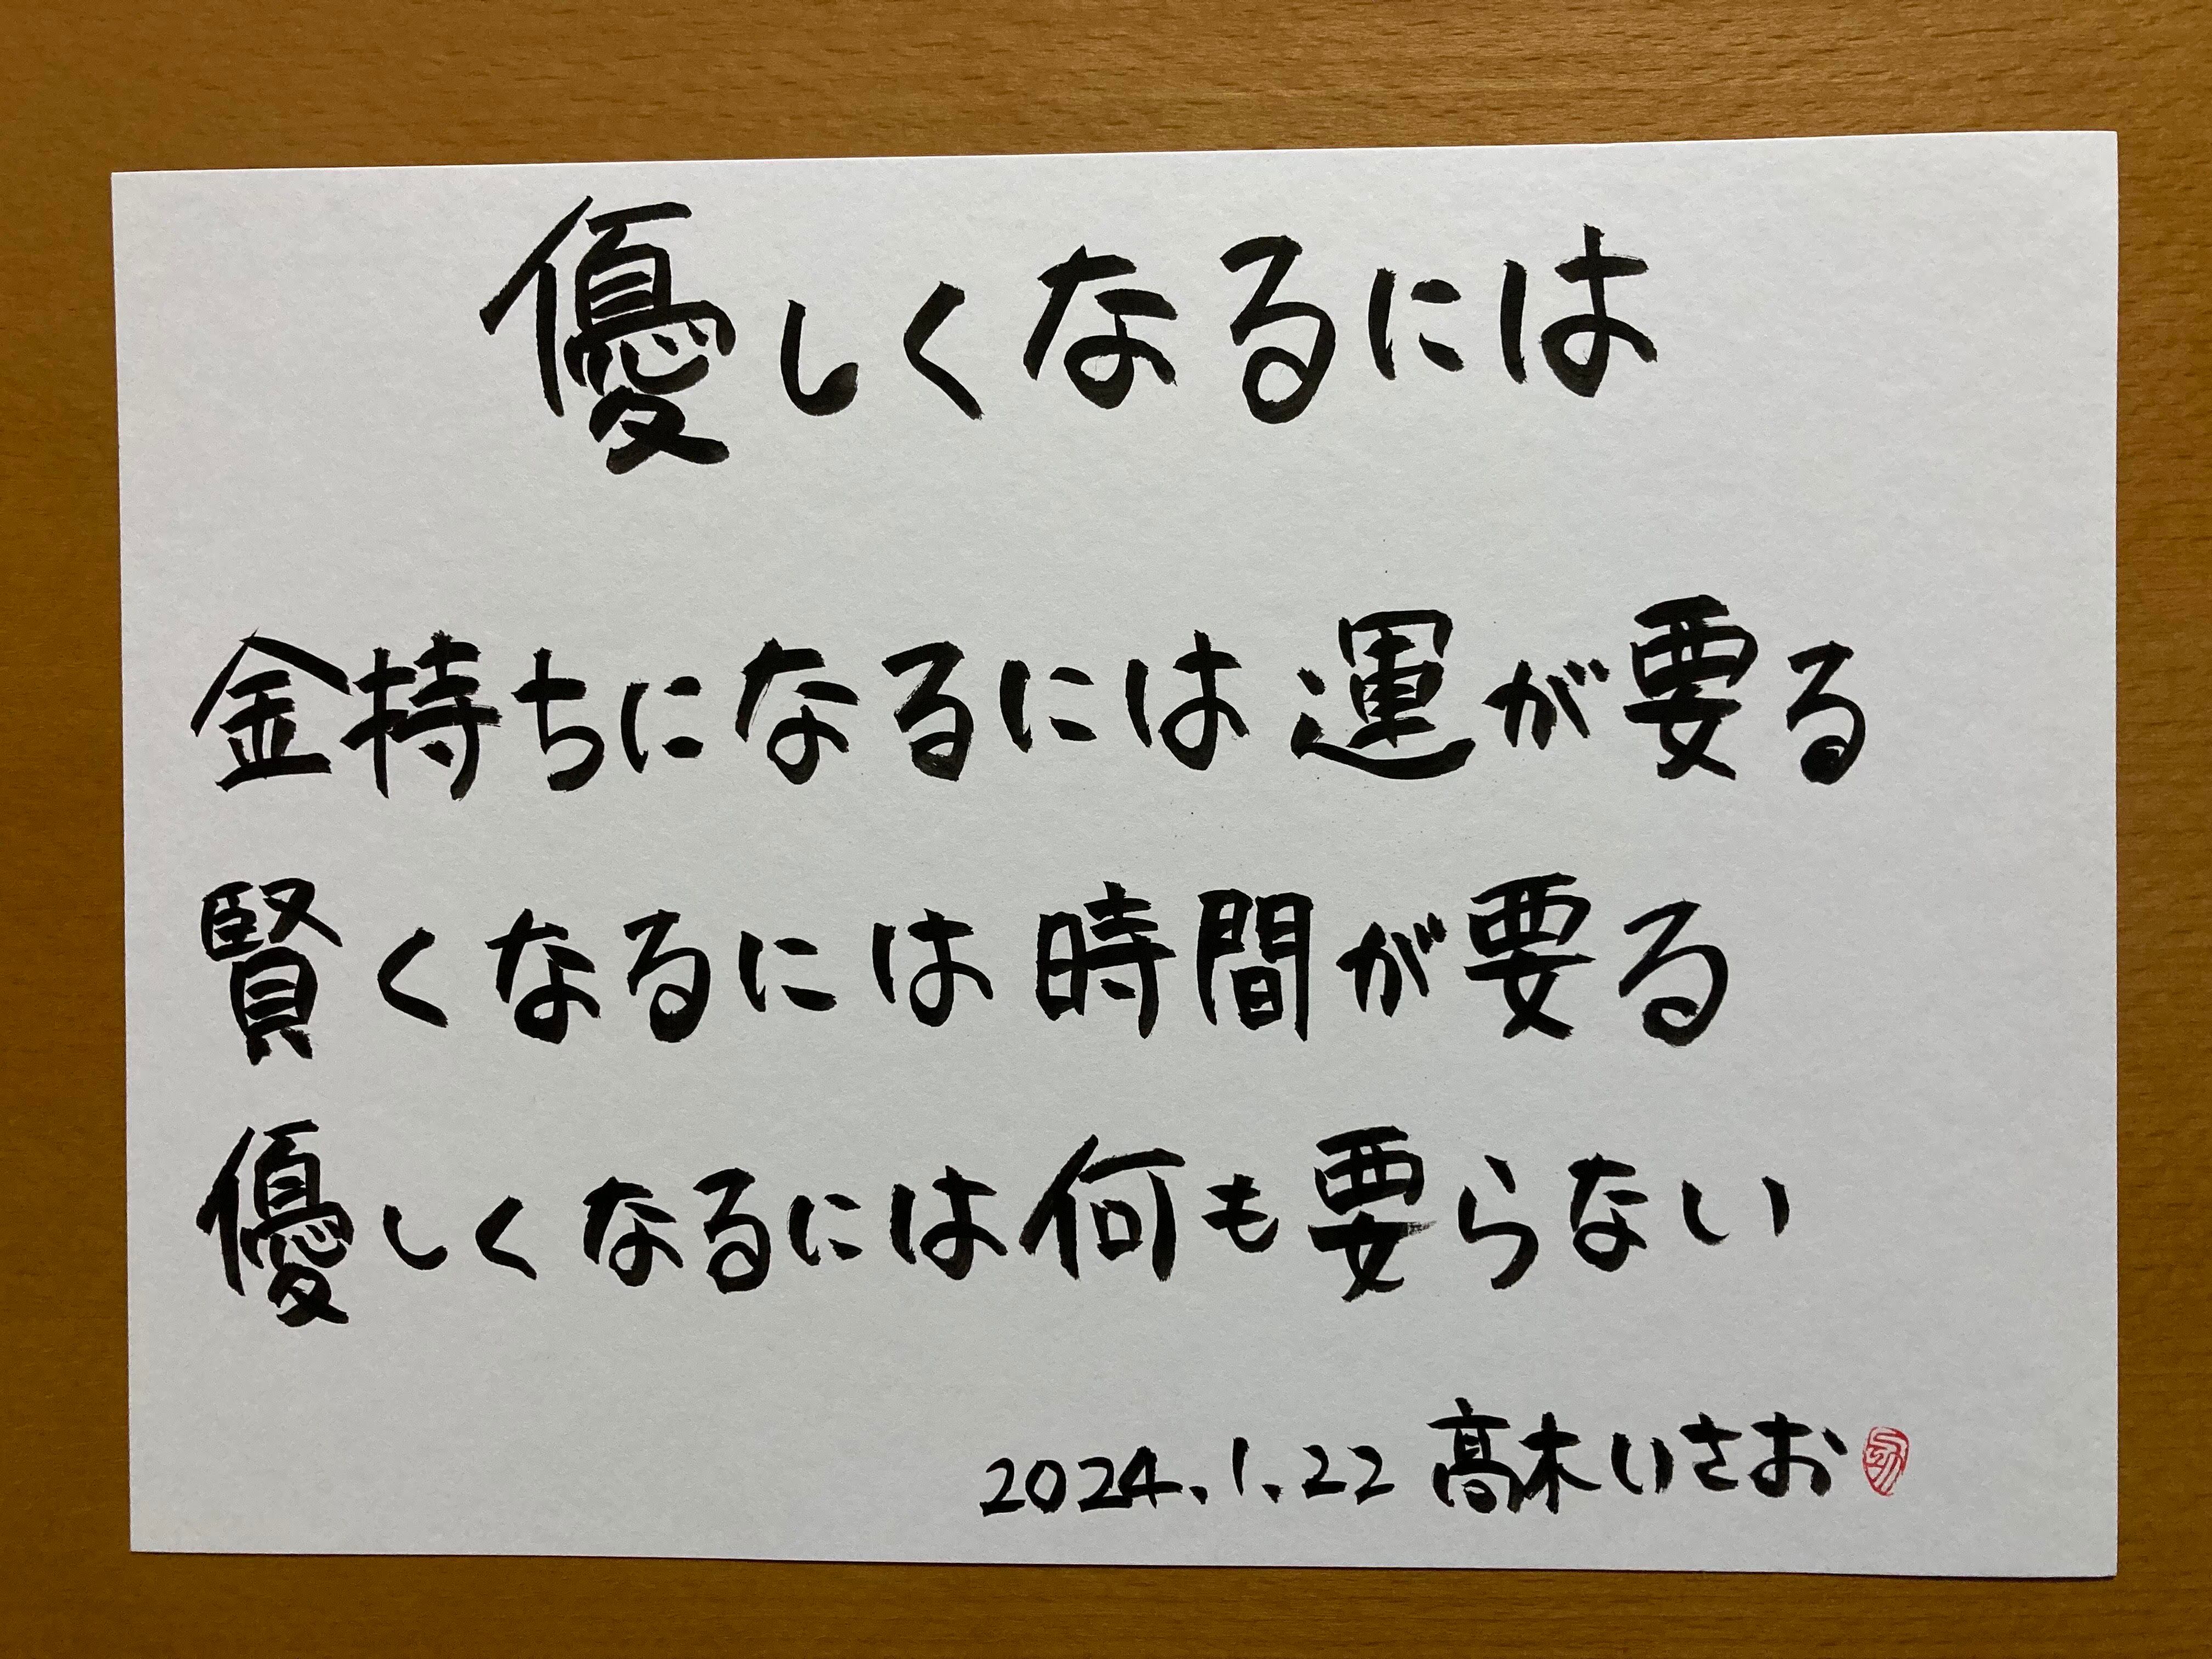 優しくなるには
金持ちになるには運が要る
賢くなるには時間が要る
優しくなるには何も要らない
2024.1.22 髙木いさお